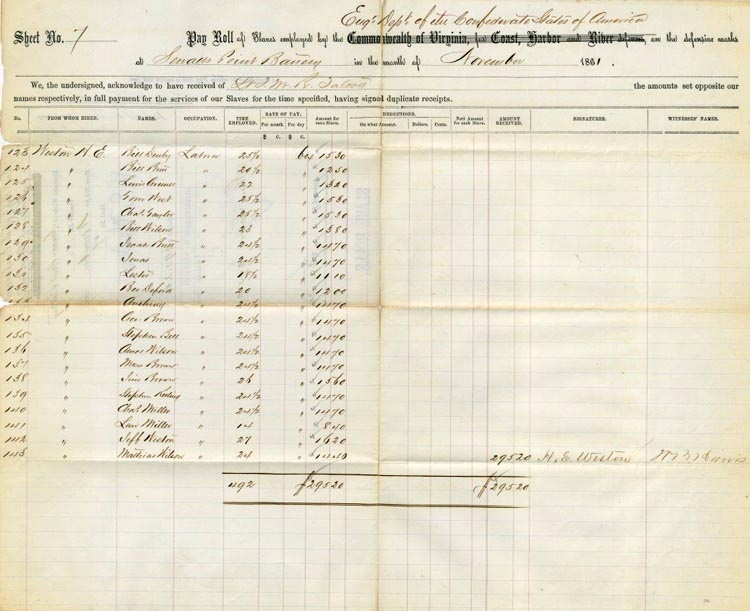 Engr Dept of the Confederate States of America
Sheet No. 7 Pay Roll of Slaves employed by the Commonwealth of Virginia, for Coast, Harbor and River defences, on the defensive works
at Point Battery in the month of November 1861.
We, the undersigned, acknowledge to have received of the amounts set opposite our
names respectively, in full payment for the services of our Slaves for the time specified, having signed duplicate receipts.
No. FROM WHOM HIRED. NAMES. OCCUPATION. TIME EMPLOYED. RATE OF PAY. Per month. Per day Amount for each Slave. DEDUCTIONS. On what Account. Dollars. Cents. Net Amount for each Slave. AMOUNT RECEIVED. SIGNATURES. WITNESSES' NAMES.
$ c. $ c.
123 Weston H E. Bill Denby Labror 25½ 60c 15 30
124 " Bill " 20½ " 12 30
125 " Lewis " 22 " 13 20
126 " Tom West " 25½ " 15 30
127 " Chas. Taylor " 25½ " 15 30
128 " Bill Wilson " 23 " 13 80
129 " Isaiah " 24½ " 14 70
130 " Jonas " 24½ " 14 70
131 " " 18½ " 11 10
132 " Ben " 20 " 12 00
133 " Anthony " 24½ " 14 70
134 " Geo Brown " 24½ " 14 70
135 " Stephen Bell " 24½ " 14 70
136 " Amos Wilson " 24½ " 14 70
137 " Brown " 24½ " 14 70
138 " Jim Brown " 26 " 15 60
139 " Stephen " 24½ " 14 70
140 " Chas. Miller " 24½ " 14 70
141 " Miller " 14 " 8 40
142 " Jeff Weston " 27 " 16 20
143 " Mathias Wilson " 24 " 14 40 295 20 H. E. Weston
492 $295 20 $295 20